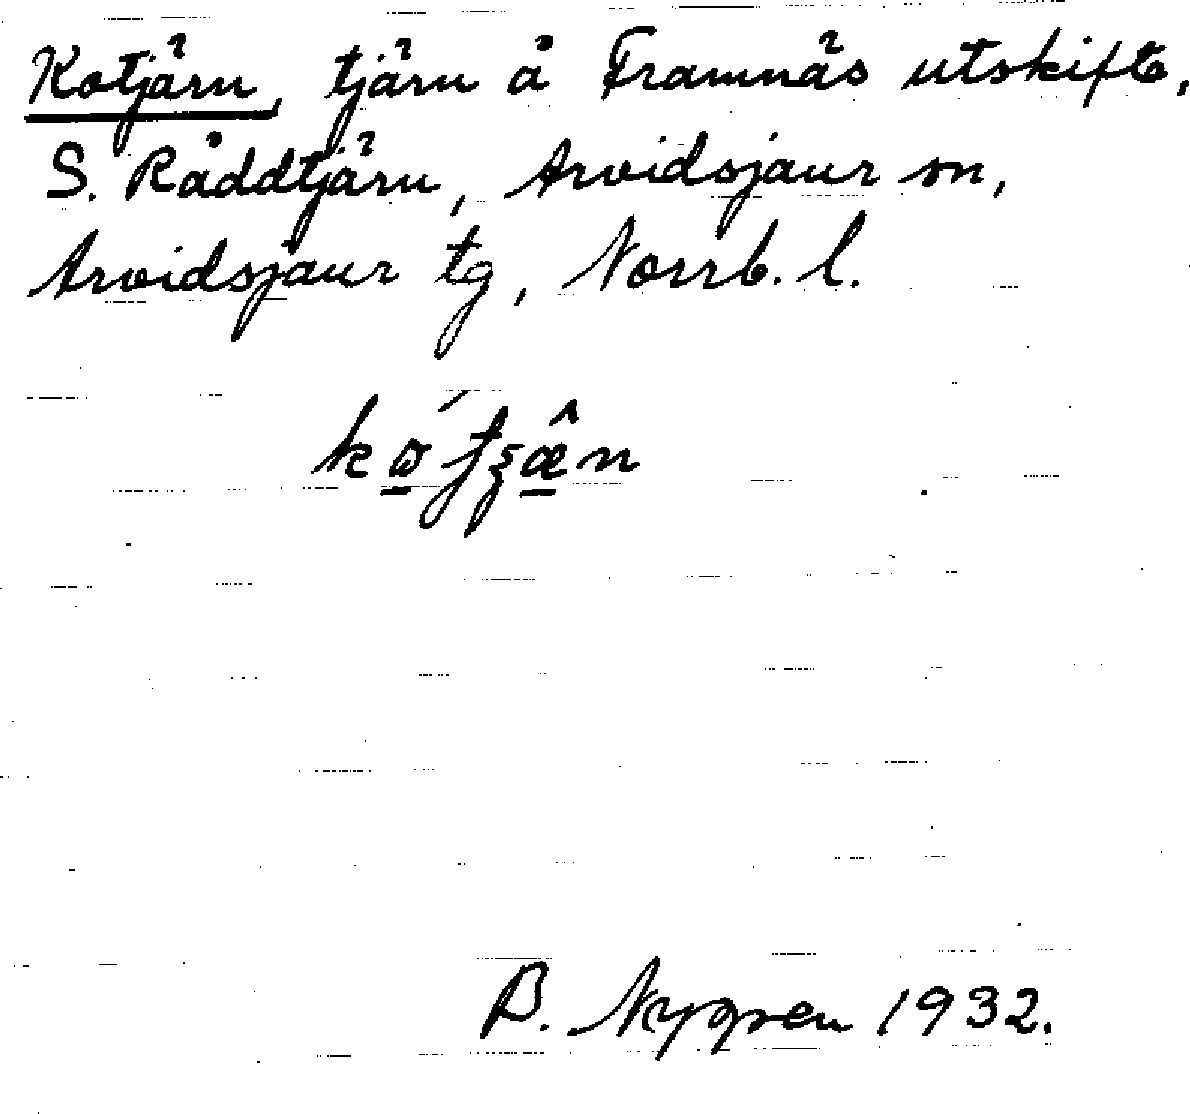 Kotjärn, tjärn å Framnäs utskifte,
S. Råddtjärn, Arvidsjaur sn,
Arvidsjaur tg, Norrb. l.
B. Nygren 1932.